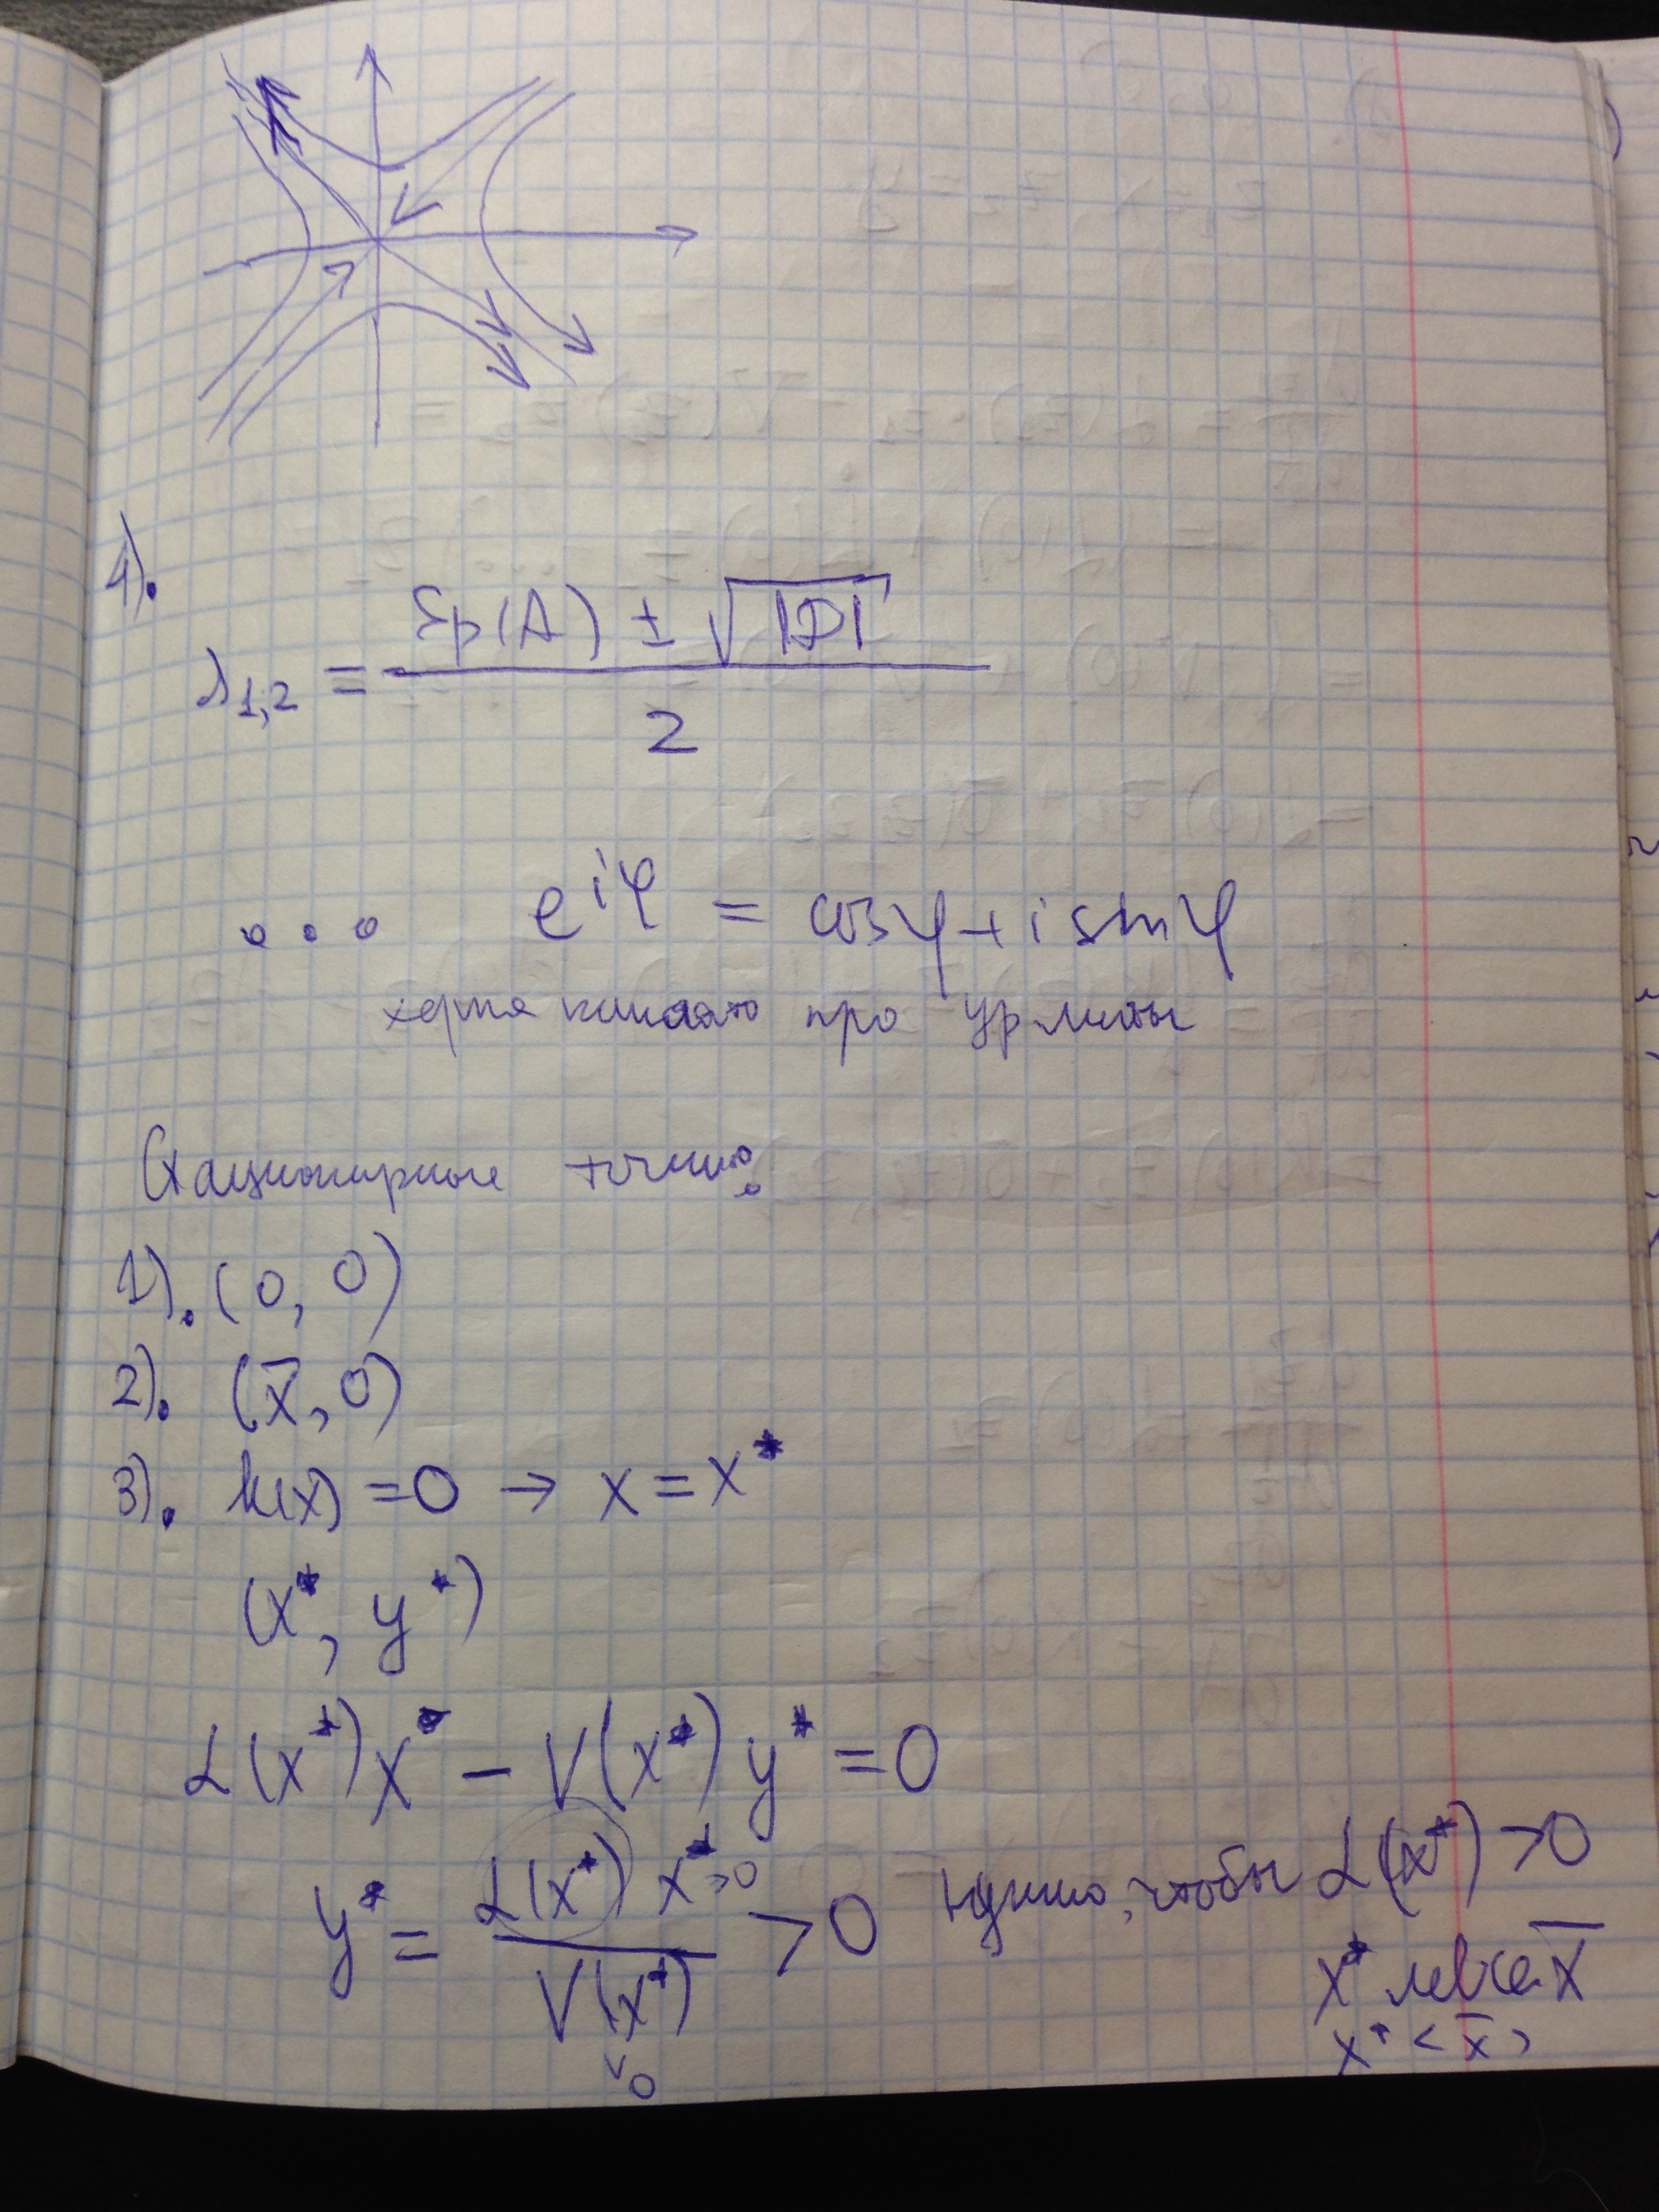 4).
λ1,2 = (Sp(A) ± √|D|) / 2
... e^{iφ} = cosφ + i sinφ
про
Стационарные точки:
1). (0, 0)
2). (x̄, 0)
3). k(x) = 0 → x = x*
(x*, y*)
α(x*)x* − V(x*)y* = 0
y* = α(x*) x* >0 / V(x*) >0 > 0 нужно, чтобы α(x*) > 0
x* левее x̄
x* < x̄